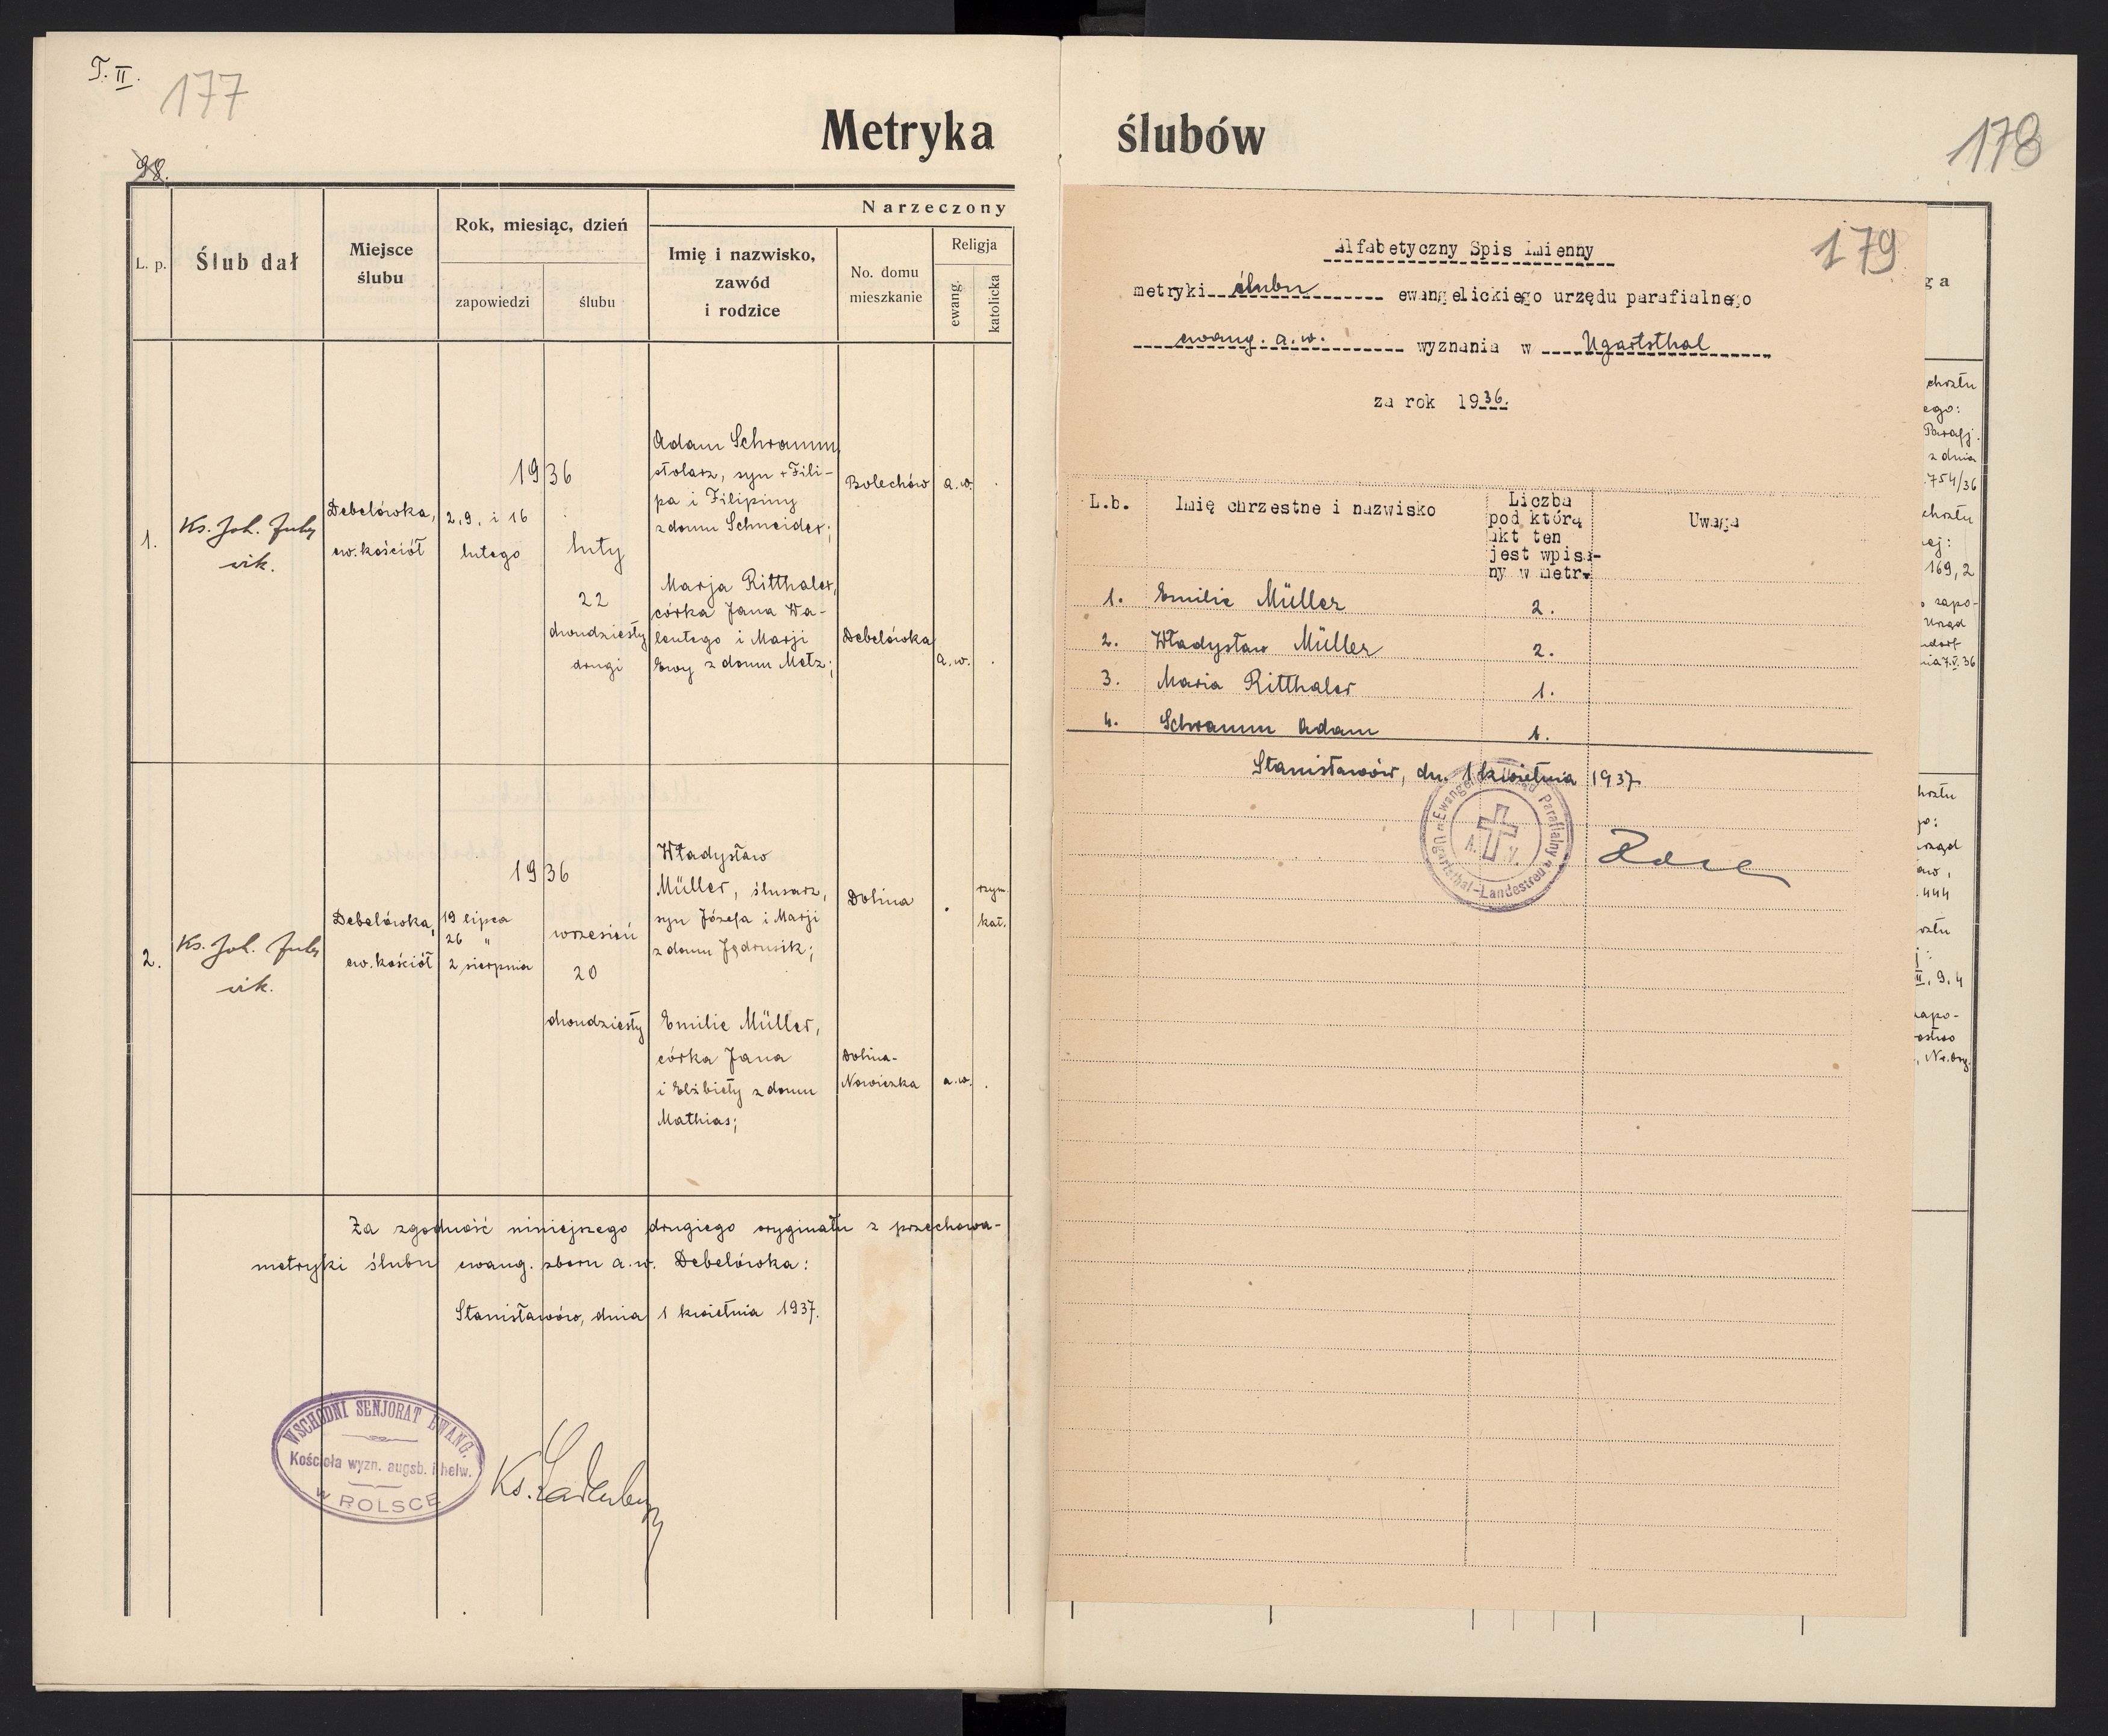 T. II.
177
98.
Metryka
L. p.
Ślub dał
Miejsce
ślubu
Rok, miesiąc, dzień
zapowiedzi
ślubu
Narzeczony
Imię i nazwisko,
zawód
i rodzice
No. domu
mieszkanie
Religja
ewang.
katolicka
1.
Ks. Joh.
wik.
Debelówka,
ew. kościół
1936
2, 9, i 16
lutego
luty
22
dwudziesty
drugi
Adam Schramm,
stolarz, syn + Fili-
pa i Filipiny
z domu Schneider;
Bolechów
a.w.
Marja Ritthaler,
córka Jana Wa-
lentego i Marji
Ewy z domu Metz;
Debelówka
a.w.
2.
Ks. Joh.
wik.
Debelówka,
ew. kościół
1936
19 lipca
26 "
2 sierpnia
wrzesień
20
dwudziesty
Władysław
Müller, ślusarz,
syn Józefa i Marji
z domu Jędrusik;
Dolina
rzym.
kat.
Emilie Müller,
córka Jana
i Elżbiety z domu
Mathias;
Dolina-
Nowiczka
a.w.
Za zgodność niniejszego drugiego oryginału z przechowa-
metryki ślubu ewang. zboru a.w. Debelówka:
Stanisławów, dnia 1 kwietnia 1937.
WSCHODNI SENJORAT EWANG.
Kościoła wyzn. augsb. i helw.
w POLSCE
Ks.
ślubów
178
179
Alfabetyczny Spis Imienny
metryki ślubu ewangelickiego urzędu parafialnego
ewang. a.w. wyznania w Ugartsthal
za rok 1936.
L.b.
Imię chrzestne i nazwisko
Liczba
pod którą
akt ten
jest wpisa-
ny w metr.
Uwaga
1. Emilie Müller 2.
2. Władysław Müller 2.
3. Maria Ritthaler 1.
4. Schramm Adam 1.
Stanisławów, dn. 1 kwietnia 1937.
Ewangelicki Urząd Parafialny
A. W.
Ugartsthal-Landestreu
ga
chrztu
ego:
Parafj.
z dnia
754/36
chrztu
ej:
169, 2
zapo-
Urząd
ndorf
nia 7.V.36
hrztu
go:
rząd
aw,
.444
rztu
j:
II, 9, 4
zapo-
ostwo
, Nr. b.